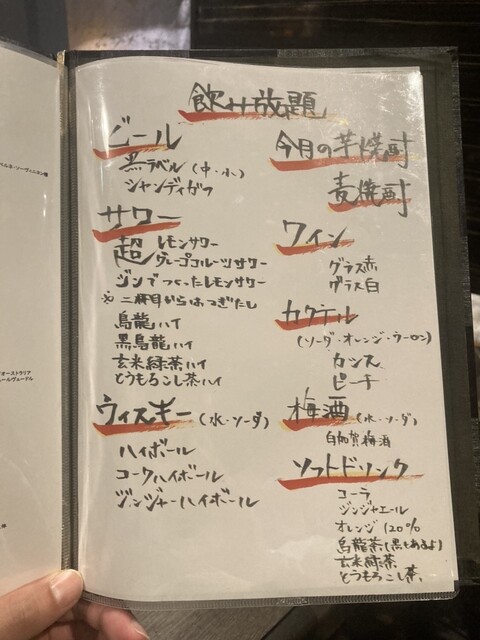 飲み放題
ビール
黒ラベル(中・小)
シャンディガフ
サワー
超レモンサワー
グレープフルーツサワー
ジンでつくったレモンサワー
※二杯目からはつぎたし
烏龍ハイ
黒烏龍ハイ
玄米緑茶ハイ
とうもろこし茶ハイ
ウィスキー(水・ソーダ)
ハイボール
コークハイボール
ジンジャーハイボール
今月の芋焼酎
麦焼酎
ワイン
グラス赤
グラス白
カクテル
(ソーダ・オレンジ・ウーロン)
カシス
ピーチ
梅酒(水・ソーダ)
白加賀梅酒
ソフトドリンク
コーラ
ジンジャエール
オレンジ120%
烏龍茶(黒もあるよ)
玄米緑茶
とうもろこし茶